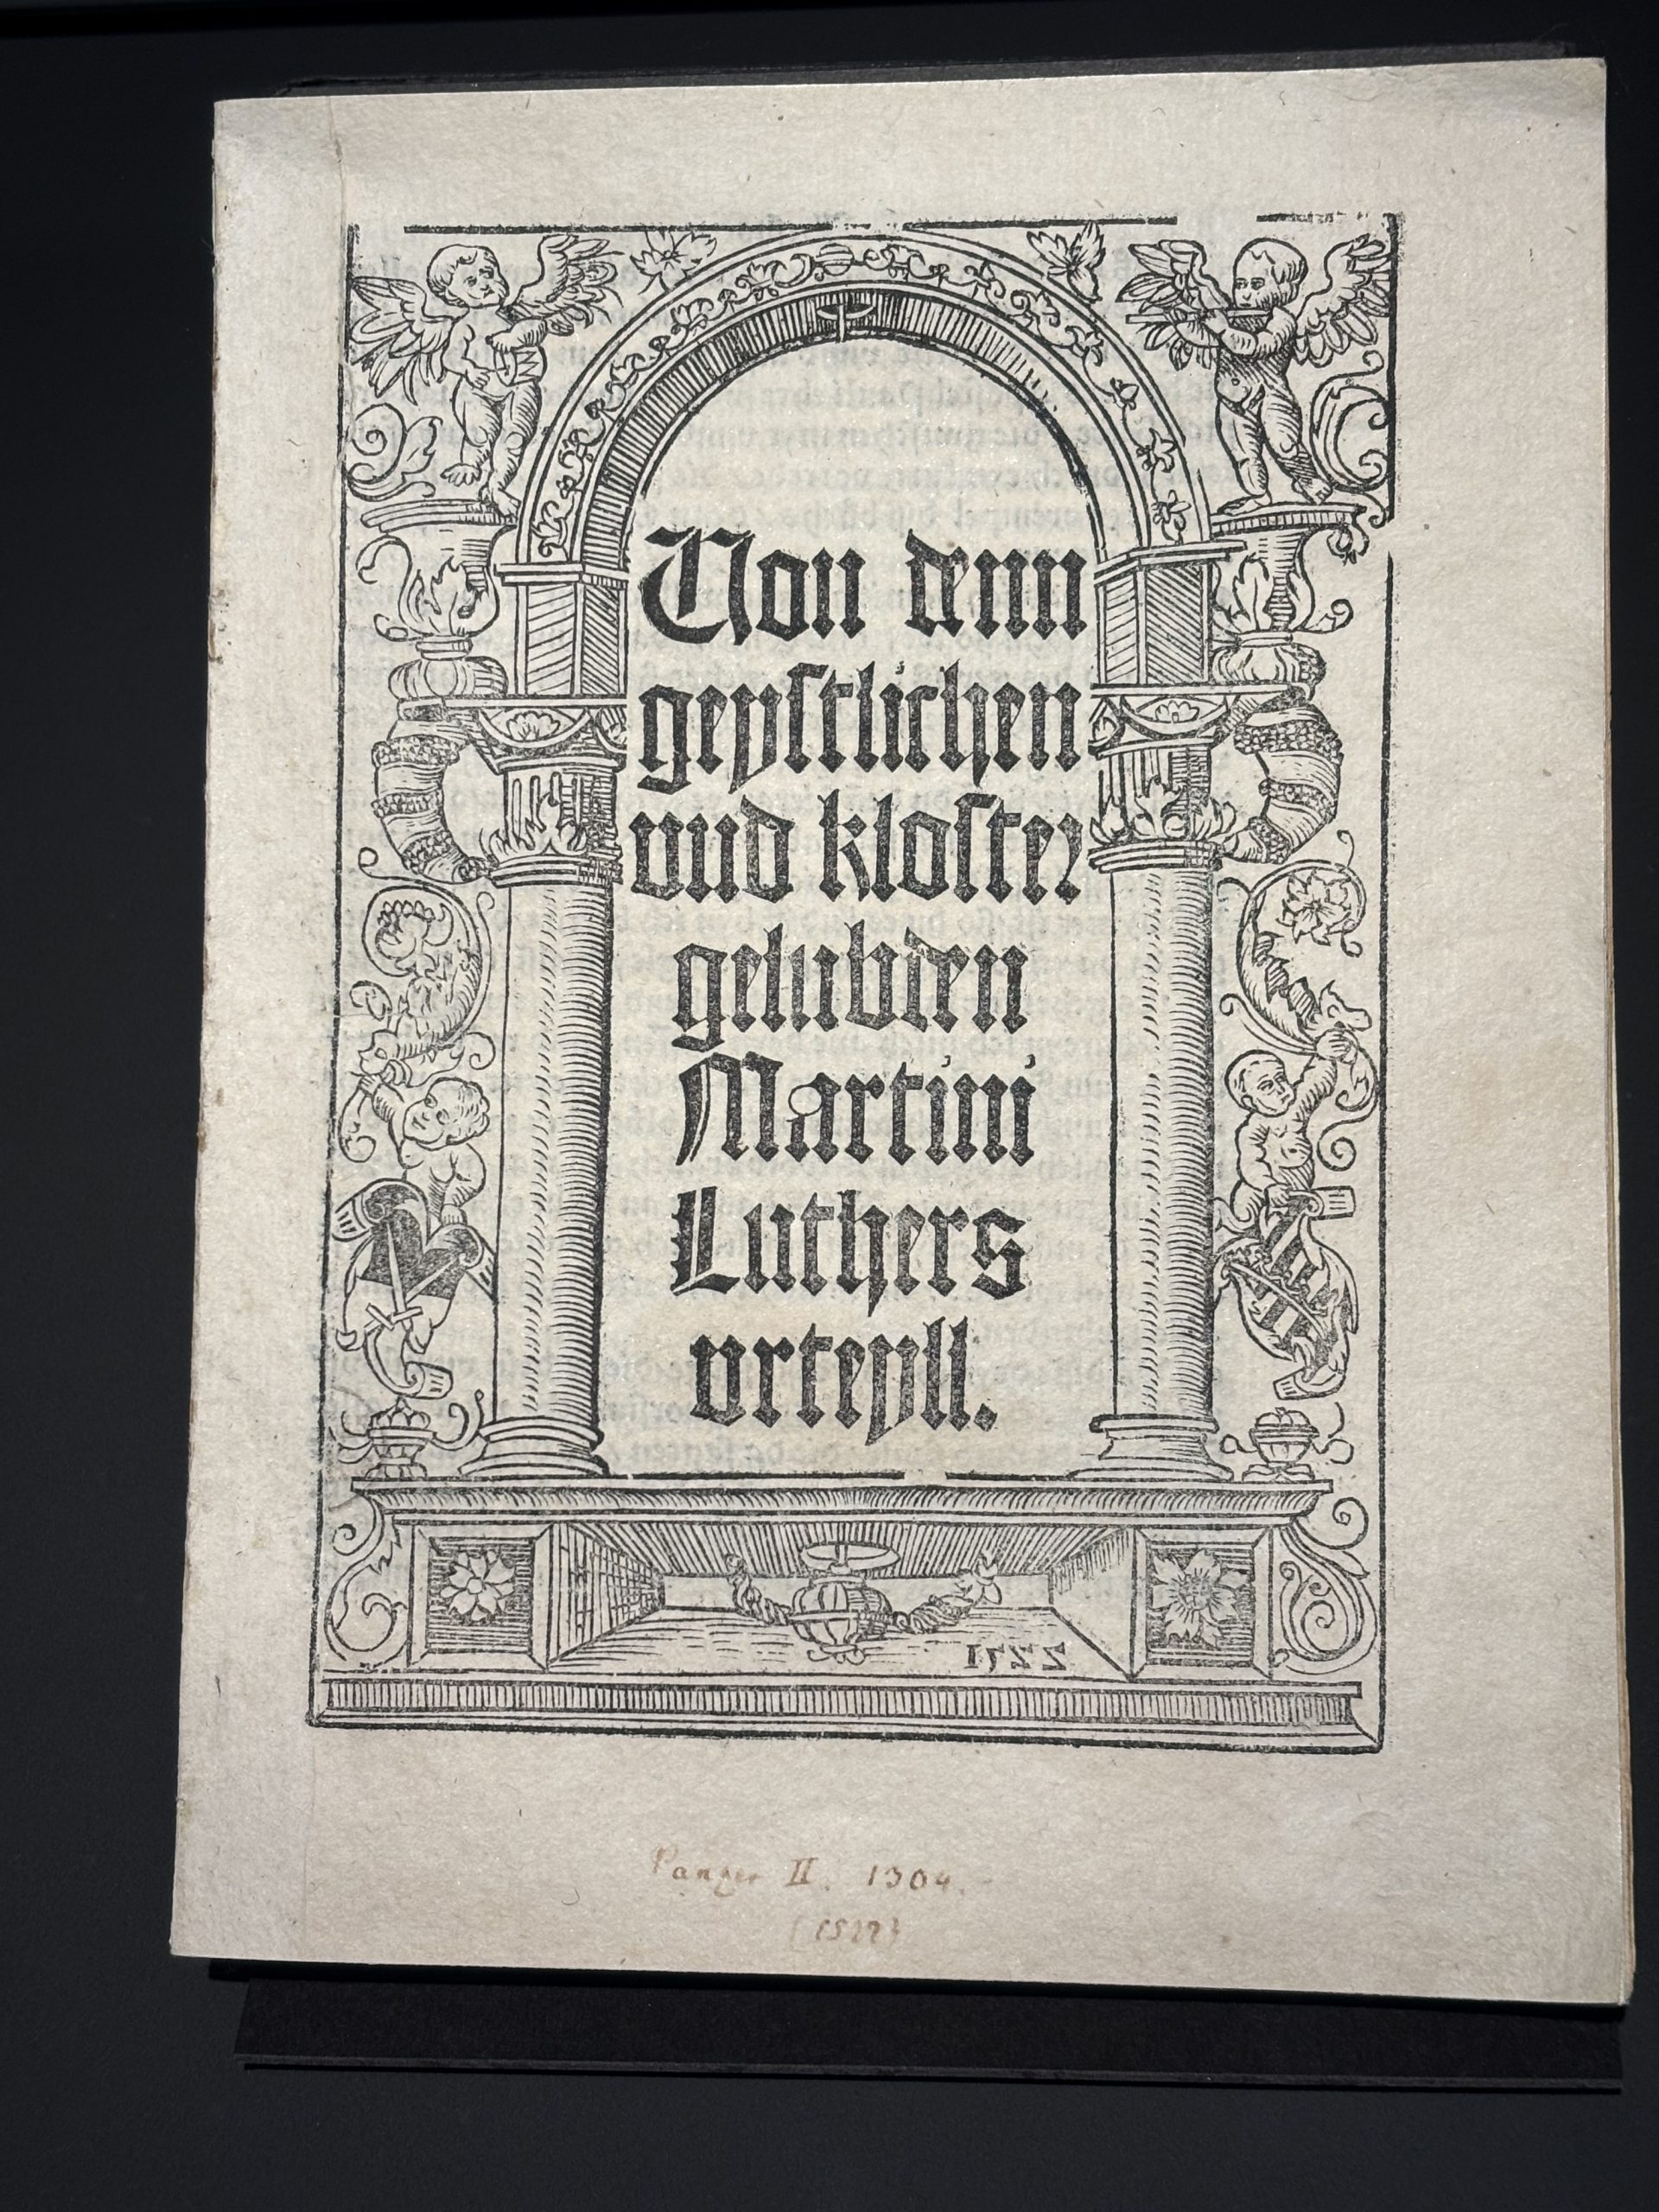 Von denn
geyſtlichen
vnd kloſter
gelubden
Martini
Luthers
vrteyll.
1522
Panzer II. 1304.
(1522)